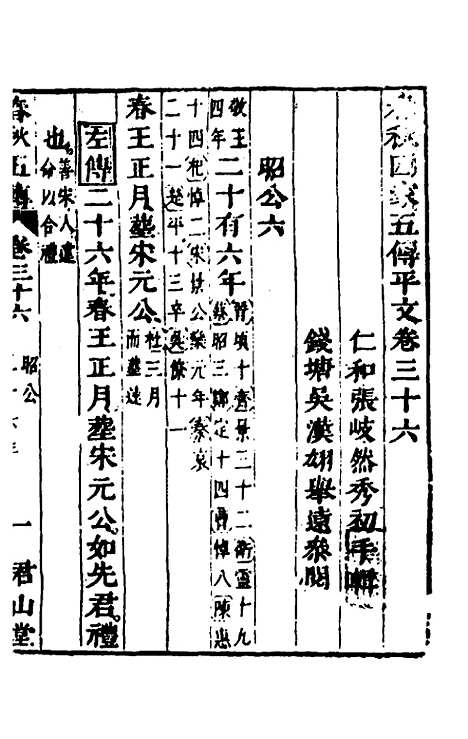 春秋四家五傳平文卷三十六
仁和張岐然秀初手輯
錢塘吳漢翊舉遠叅閱
昭公六
敬王四年二十有六年晉頃十齊景三十二衛靈十九
蔡昭三鄭定十四曹悼八陳惠
十四杞悼二宋景公欒元年秦哀
二十一楚平十三卒吳僚十一
春王正月葬宋元公杜三月而葬速
左傳二十六年春王正月葬宋元公如先君禮
也善宋人違命以合禮
春秋五傳 卷三十六 昭公 二十六年 一 君山堂